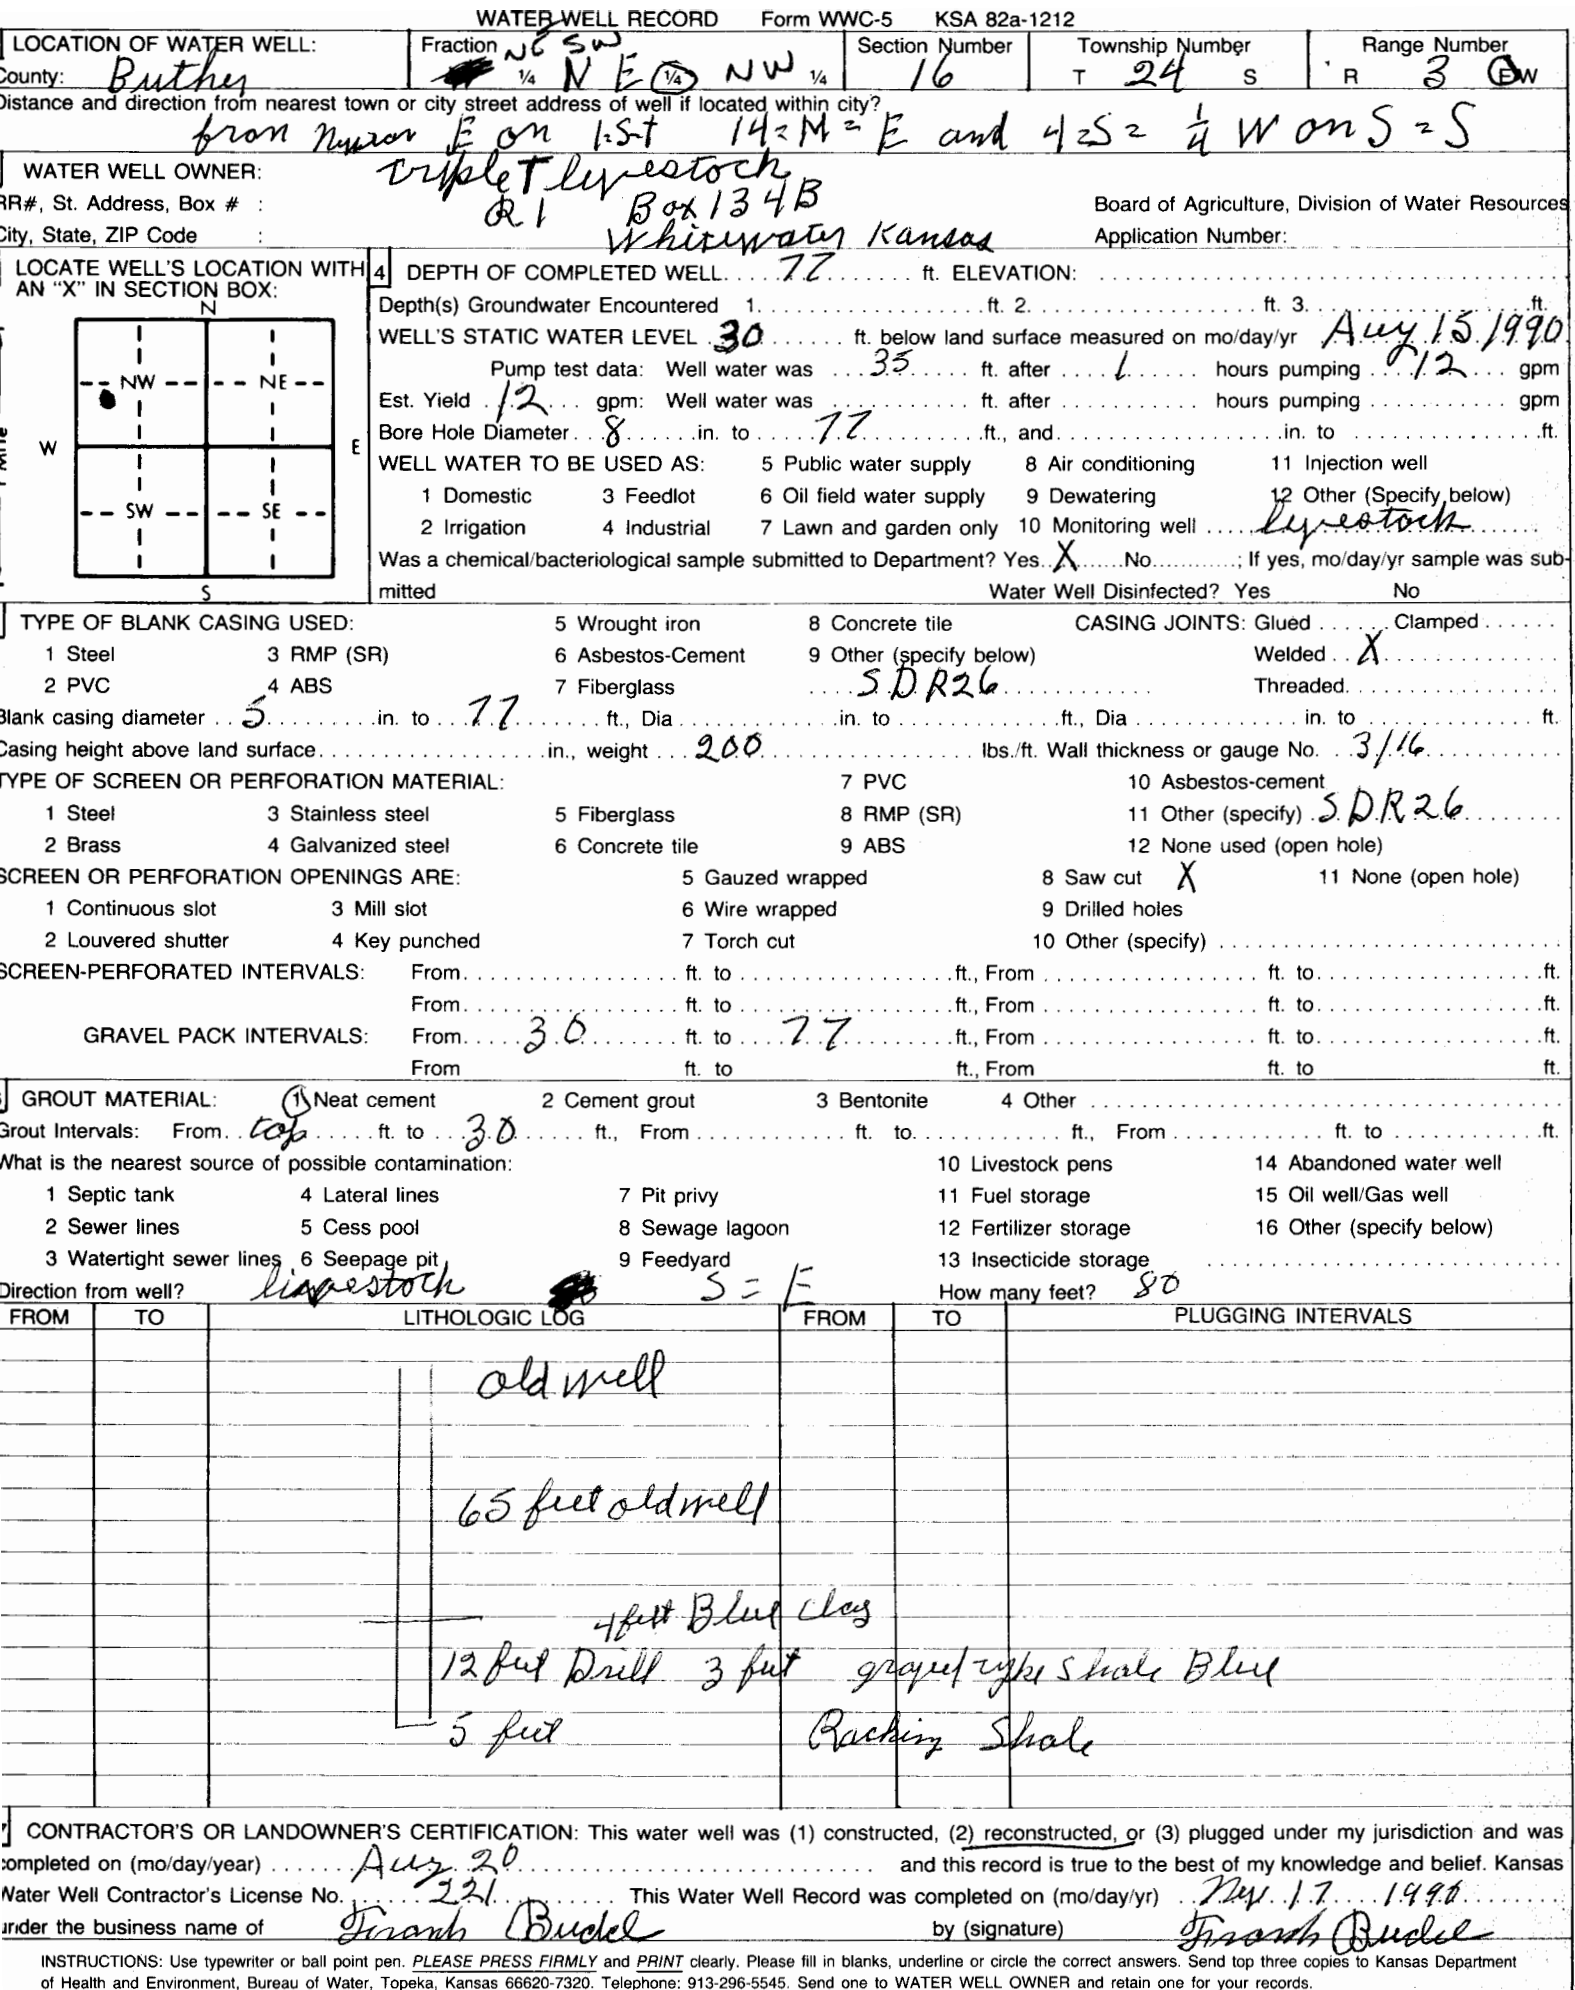 WATER WELL RECORD Form WWC-5 KSA 82a-1212
LOCATION OF WATER WELL: Fraction NE SW Section Number Township Number Range Number
County: Buther ¼ NE ¼ NW ¼ 16 T 24 S R 3 EW
Distance and direction from nearest town or city street address of well if located within city?
from E on 1-St 14=M= E and 4=S= ¼ W on S=S
WATER WELL OWNER: triple T lyvestock
RR#, St. Address, Box # : R1 Box 134B Board of Agriculture, Division of Water Resources
City, State, ZIP Code : Whitewater Kansas Application Number:
LOCATE WELL'S LOCATION WITH
AN "X" IN SECTION BOX:
N
NW NE
W E
SW SE
S
4 DEPTH OF COMPLETED WELL 77 ft. ELEVATION:
Depth(s) Groundwater Encountered 1. ft. 2. ft. 3. ft.
WELL'S STATIC WATER LEVEL 30 ft. below land surface measured on mo/day/yr Aug 15 1990
Pump test data: Well water was 35 ft. after 1 hours pumping 12 gpm
Est. Yield 12 gpm: Well water was ft. after hours pumping gpm
Bore Hole Diameter 8 in. to 77 ft., and in. to ft.
WELL WATER TO BE USED AS: 5 Public water supply 8 Air conditioning 11 Injection well
1 Domestic 3 Feedlot 6 Oil field water supply 9 Dewatering 12 Other (Specify below)
2 Irrigation 4 Industrial 7 Lawn and garden only 10 Monitoring well lyvestock
Was a chemical/bacteriological sample submitted to Department? Yes X No ; If yes, mo/day/yr sample was sub-
mitted Water Well Disinfected? Yes No
TYPE OF BLANK CASING USED: 5 Wrought iron 8 Concrete tile CASING JOINTS: Glued Clamped
1 Steel 3 RMP (SR) 6 Asbestos-Cement 9 Other (specify below) Welded X
2 PVC 4 ABS 7 Fiberglass SDR26 Threaded
Blank casing diameter 5 in. to 77 ft., Dia in. to ft., Dia in. to ft.
Casing height above land surface in., weight 200 lbs./ft. Wall thickness or gauge No. 3/16
TYPE OF SCREEN OR PERFORATION MATERIAL: 7 PVC 10 Asbestos-cement
1 Steel 3 Stainless steel 5 Fiberglass 8 RMP (SR) 11 Other (specify) SDR26
2 Brass 4 Galvanized steel 6 Concrete tile 9 ABS 12 None used (open hole)
SCREEN OR PERFORATION OPENINGS ARE: 5 Gauzed wrapped 8 Saw cut X 11 None (open hole)
1 Continuous slot 3 Mill slot 6 Wire wrapped 9 Drilled holes
2 Louvered shutter 4 Key punched 7 Torch cut 10 Other (specify)
SCREEN-PERFORATED INTERVALS: From ft. to ft., From ft. to ft.
From ft. to ft., From ft. to ft.
GRAVEL PACK INTERVALS: From 30 ft. to 77 ft., From ft. to ft.
From ft. to ft., From ft. to ft.
GROUT MATERIAL: 1 Neat cement 2 Cement grout 3 Bentonite 4 Other
Grout Intervals: From top ft. to 30 ft., From ft. to ft., From ft. to ft.
What is the nearest source of possible contamination: 10 Livestock pens 14 Abandoned water well
1 Septic tank 4 Lateral lines 7 Pit privy 11 Fuel storage 15 Oil well/Gas well
2 Sewer lines 5 Cess pool 8 Sewage lagoon 12 Fertilizer storage 16 Other (specify below)
3 Watertight sewer lines 6 Seepage pit 9 Feedyard 13 Insecticide storage
Direction from well? livestock S=E How many feet? 80
FROM TO LITHOLOGIC LOG FROM TO PLUGGING INTERVALS
old well
65 feet old well
4 feet Blue Clay
12 feet Drill 3 feet type Shale Blue
5 feet Shale
CONTRACTOR'S OR LANDOWNER'S CERTIFICATION: This water well was (1) constructed, (2) reconstructed, or (3) plugged under my jurisdiction and was
completed on (mo/day/year) Aug. 20 and this record is true to the best of my knowledge and belief. Kansas
Water Well Contractor's License No. 221 This Water Well Record was completed on (mo/day/yr) 17 1990
under the business name of Frank Budel by (signature) Frank Budel
INSTRUCTIONS: Use typewriter or ball point pen. PLEASE PRESS FIRMLY and PRINT clearly. Please fill in blanks, underline or circle the correct answers. Send top three copies to Kansas Department
of Health and Environment, Bureau of Water, Topeka, Kansas 66620-7320. Telephone: 913-296-5545. Send one to WATER WELL OWNER and retain one for your records.